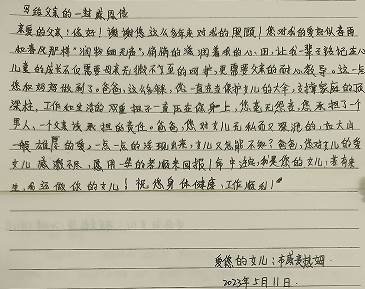 写给父亲的一封感恩信
亲爱的父亲：您好！谢谢您这么多年来对我的照顾！您对我的爱好似春雨
如春夜那样"润物细无声"，悄悄的滋润着我的心田，让我一辈子铭记在心
儿女的成长不仅需要母亲无微不至的呵护，更需要父亲的耐心教导。这一点
您和妈妈做到了。爸爸，这么多年，您一直在守护儿的大伞，支撑家庭的顶
梁柱，工作和生活的双重担子一直压在您身上，您毫无怨言，您承担了一个
男人、一个父亲该承担的责任。爸爸，您对女儿无私而又深沉的，如大山
一般雄厚的爱，一点一点的浮现出来，女儿又怎能不知？爸爸，您对女儿的爱
女儿感激不尽，愿用一生的孝顺来回报！今生，我是您的女儿，若有来
生，我还做你的女儿！祝您身体健康，工作顺利！
爱您的女儿：布麦麦其姆
2023年5月11日.